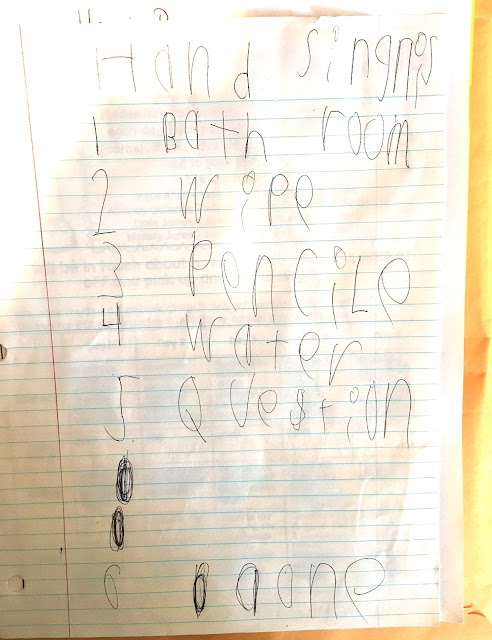 Hand
1 Bath room
2 wipe
3 PenciLe
4 water
5. Question
6